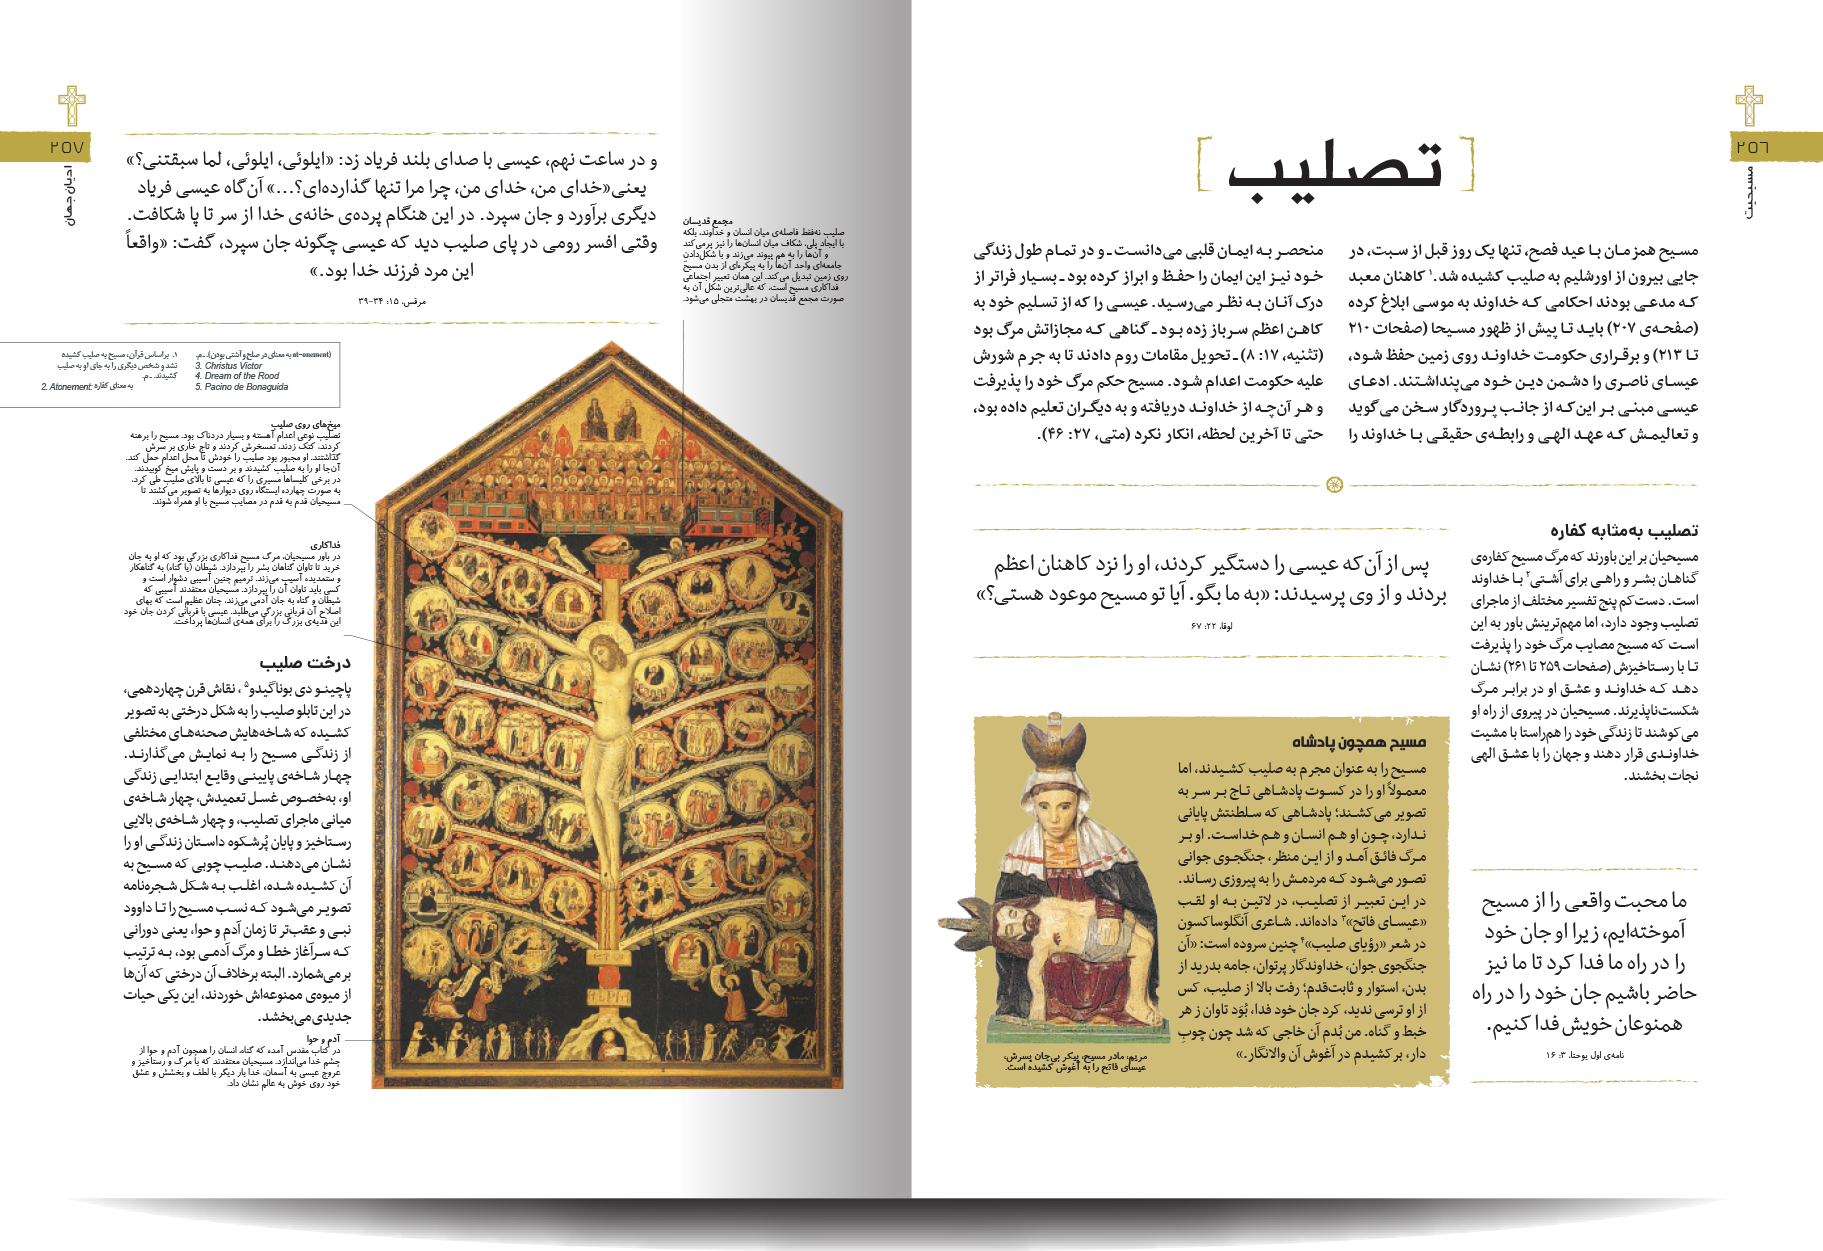 ۲۵۶
مسیحیت
[ تصلیب ]
مسیح همزمان با عید فصح، تنها یک روز قبل از سبت، در
جایی بیرون از اورشلیم به صلیب کشیده شد.۱ کاهنان معبد
که مدعی بودند احکامی که خداوند به موسی ابلاغ کرده
(صفحه‌ی ۲۰۷) باید تا پیش از ظهور مسیحا (صفحات ۲۱۰
تا ۲۱۳) و برقراری حکومت خداوند روی زمین حفظ شود،
عیسای ناصری را دشمن دین خود می‌پنداشتند. ادعای
عیسی مبنی بر این‌که از جانب پروردگار سخن می‌گوید
و تعالیمش که عهد الهی و رابطه‌ی حقیقی با خداوند را
منحصر به ایمان قلبی می‌دانست ـ و در تمام طول زندگی
خود نیز این ایمان را حفظ و ابراز کرده بود ـ بسیار فراتر از
درک آنان به نظر می‌رسید. عیسی را که از تسلیم خود به
کاهن اعظم سرباز زده بود ـ گناهی که مجازاتش مرگ بود
(تثنیه، ۱۷: ۸) ـ تحویل مقامات روم دادند تا به جرم شورش
علیه حکومت اعدام شود. مسیح حکم مرگ خود را پذیرفت
و هر آن‌چه از خداوند دریافته و به دیگران تعلیم داده بود،
حتی تا آخرین لحظه، انکار نکرد (متی، ۲۷: ۴۶).
تصلیب به‌مثابه کفاره
مسیحیان بر این باورند که مرگ مسیح کفاره‌ی
گناهان بشر و راهی برای آشتی۲ با خداوند
است. دست‌کم پنج تفسیر مختلف از ماجرای
تصلیب وجود دارد، اما مهم‌ترینش باور به این
است که مسیح مصایب مرگ خود را پذیرفت
تا با رستاخیزش (صفحات ۲۵۹ تا ۲۶۱) نشان
دهد که خداوند و عشق او در برابر مرگ
شکست‌ناپذیرند. مسیحیان در پیروی از راه او
می‌کوشند تا زندگی خود را هم‌راستا با مشیت
خداوندی قرار دهند و جهان را با عشق الهی
نجات بخشند.
ما محبت واقعی را از مسیح
آموخته‌ایم، زیرا او جان خود
را در راه ما فدا کرد تا ما نیز
حاضر باشیم جان خود را در راه
همنوعان خویش فدا کنیم.
نامه‌ی اول یوحنا، ۳: ۱۶
پس از آن‌که عیسی را دستگیر کردند، او را نزد کاهنان اعظم
بردند و از وی پرسیدند: «به ما بگو. آیا تو مسیح موعود هستی؟»
لوقا، ۲۲: ۶۷
مسیح همچون پادشاه
مسیح را به عنوان مجرم به صلیب کشیدند، اما
معمولاً او را در کسوت پادشاهی تاج بر سر به
تصویر می‌کشند؛ پادشاهی که سلطنتش پایانی
ندارد، چون او هم انسان و هم خداست. او بر
مرگ فائق آمد و از این منظر، جنگجوی جوانی
تصور می‌شود که مردمش را به پیروزی رساند.
در این تعبیر از تصلیب، در لاتین به او لقب
«عیسای فاتح»۳ داده‌اند. شاعری آنگلوساکسون
در شعر «رؤیای صلیب»۴ چنین سروده است: «آن
جنگجوی جوان، خداوندگار پرتوان، جامه بدرید از
بدن، استوار و ثابت‌قدم؛ رفت بالا از صلیب، کس
از او ترسی ندید، کرد جان خود فدا، بُوَد تاوان ز هر
خبط و گناه. من بُدم آن خاجی که شد چون چوبِ
دار، برکشیدم در آغوش آن والانگار.»
مریم، مادر مسیح، پیکر بی‌جان پسرش،
عیسای فاتح را به آغوش کشیده است.
۲۵۷
ادیان جهان
و در ساعت نهم، عیسی با صدای بلند فریاد زد: «ایلوئی، ایلوئی، لما سبقتنی؟»
یعنی«خدای من، خدای من، چرا مرا تنها گذارده‌ای؟...» آن‌گاه عیسی فریاد
دیگری برآورد و جان سپرد. در این هنگام پرده‌ی خانه‌ی خدا از سر تا پا شکافت.
وقتی افسر رومی در پای صلیب دید که عیسی چگونه جان سپرد، گفت: «واقعاً
این مرد فرزند خدا بود.»
مرقس، ۱۵: ۳۴-۳۹
مجمع قدیسان
صلیب نه‌فقط فاصله‌ی میان انسان و خداوند، بلکه
با ایجاد پلی، شکاف میان انسان‌ها را نیز پر می‌کند
و آن‌ها را به هم پیوند می‌زند و با شکل‌دادن
جامعه‌ای واحد آن‌ها را به پیکره‌ای از بدن مسیح
روی زمین تبدیل می‌کند. این همان تعبیر اجتماعی
فداکاری مسیح است، که عالی‌ترین شکل آن به
صورت مجمع قدیسان در بهشت متجلی می‌شود.
۱. براساس قرآن، مسیح به صلیب کشیده
نشد و شخص دیگری را به جای او به صلیب
کشیدند. ـ م.
2. Atonement: به معنای کفاره
(at-onement به معنای در صلح و آشتی بودن). ـ م.
3. Christus Victor
4. Dream of the Rood
5. Pacino de Bonaguida
میخ‌های روی صلیب
تصلیب نوعی اعدام آهسته و بسیار دردناک بود. مسیح را برهنه
کردند، کتک زدند، تمسخرش کردند و تاج خاری بر سرش
گذاشتند. او مجبور بود صلیب را خودش تا محل اعدام حمل کند.
آن‌جا او را به صلیب کشیدند و بر دست و پایش میخ کوبیدند.
در برخی کلیساها مسیری را که عیسی تا بالای صلیب طی کرد،
به صورت چهارده ایستگاه روی دیوارها به تصویر می‌کشند تا
مسیحیان قدم به قدم در مصایب مسیح با او همراه شوند.
فداکاری
در باور مسیحیان، مرگ مسیح فداکاری بزرگی بود که او به جان
خرید تا تاوان گناهان بشر را بپردازد. شیطان (یا گناه) به گناهکار
و ستمدیده آسیب می‌زند. ترمیم چنین آسیبی دشوار است و
کسی باید تاوان آن را بپردازد. مسیحیان معتقدند آسیبی که
شیطان و گناه به جان آدمی می‌زند، چنان عظیم است که بهای
اصلاح آن قربانی بزرگی می‌طلبد. عیسی با قربانی کردن جان خود
این فدیه‌ی بزرگ را برای همه‌ی انسان‌ها پرداخت.
درخت صلیب
پاچینو دی بوناگیدو۵ ، نقاش قرن چهاردهمی،
در این تابلو صلیب را به شکل درختی به تصویر
کشیده که شاخه‌هایش صحنه‌های مختلفی
از زندگی مسیح را به نمایش می‌گذارند.
چهار شاخه‌ی پایینی وقایع ابتدایی زندگی
او، به‌خصوص غسل تعمیدش، چهار شاخه‌ی
میانی ماجرای تصلیب، و چهار شاخه‌ی بالایی
رستاخیز و پایان پُرشکوه داستان زندگی او را
نشان می‌دهند. صلیب چوبی که مسیح به
آن کشیده شده، اغلب به شکل شجره‌نامه
تصویر می‌شود که نسب مسیح را تا داوود
نبی و عقب‌تر تا زمان آدم و حوا، یعنی دورانی
که سرآغاز خطا و مرگ آدمی بود، به ترتیب
برمی‌شمارد. البته برخلاف آن درختی که آن‌ها
از میوه‌ی ممنوعه‌اش خوردند، این یکی حیات
جدیدی‌می‌بخشد.
آدم و حوا
در کتاب مقدس آمده که گناه، انسان را همچون آدم و حوا از
چشم خدا می‌اندازد. مسیحیان معتقدند که با مرگ و رستاخیز و
عروج عیسی به آسمان، خدا بار دیگر با لطف و بخشش و عشق
خود روی خوش به عالم نشان داد.